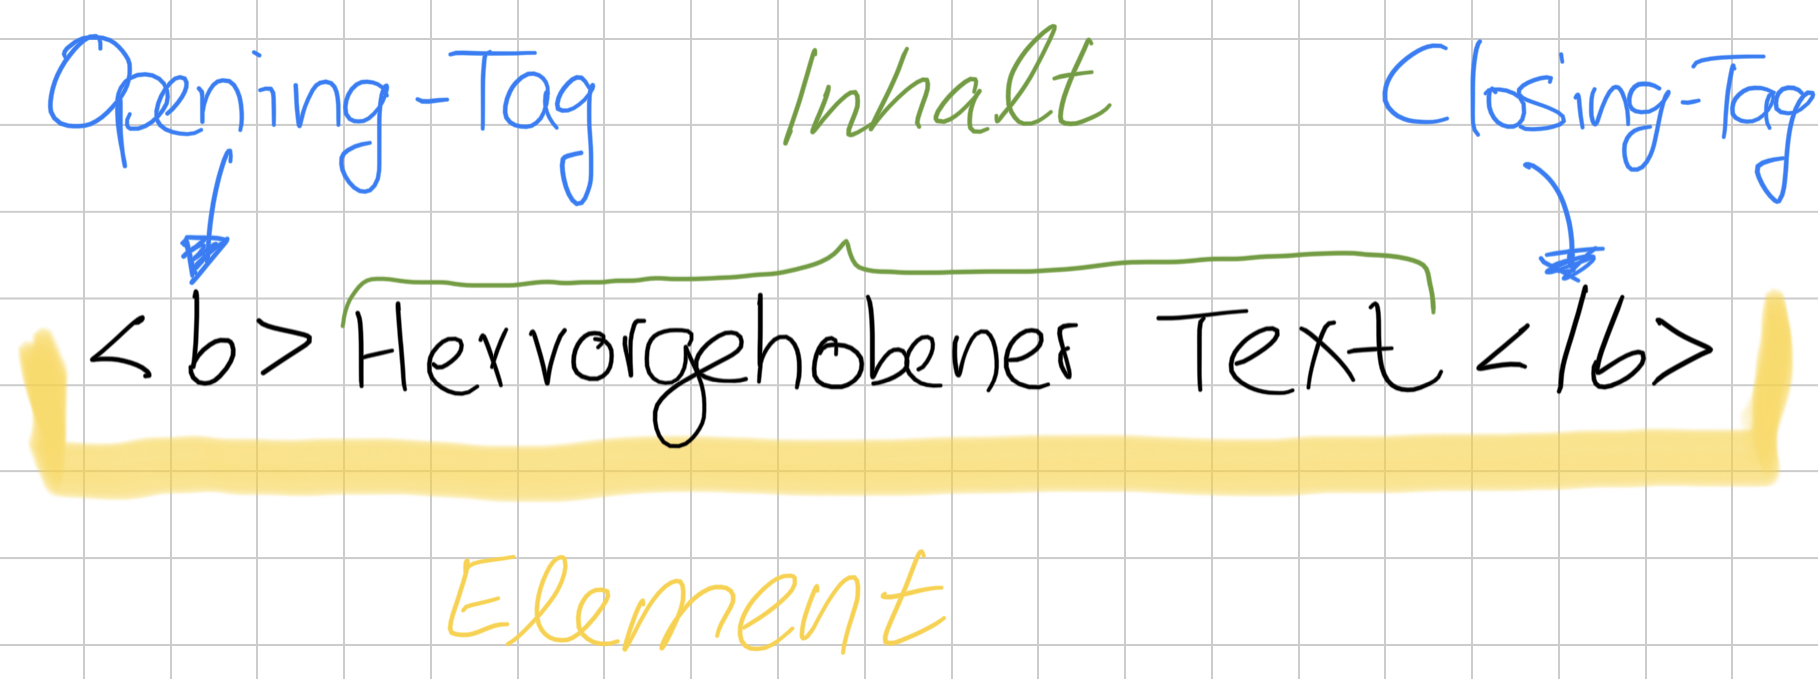 Opening-Tag Inhalt Closing-Tag
<b>Hervorgehobener Text</b>
Element